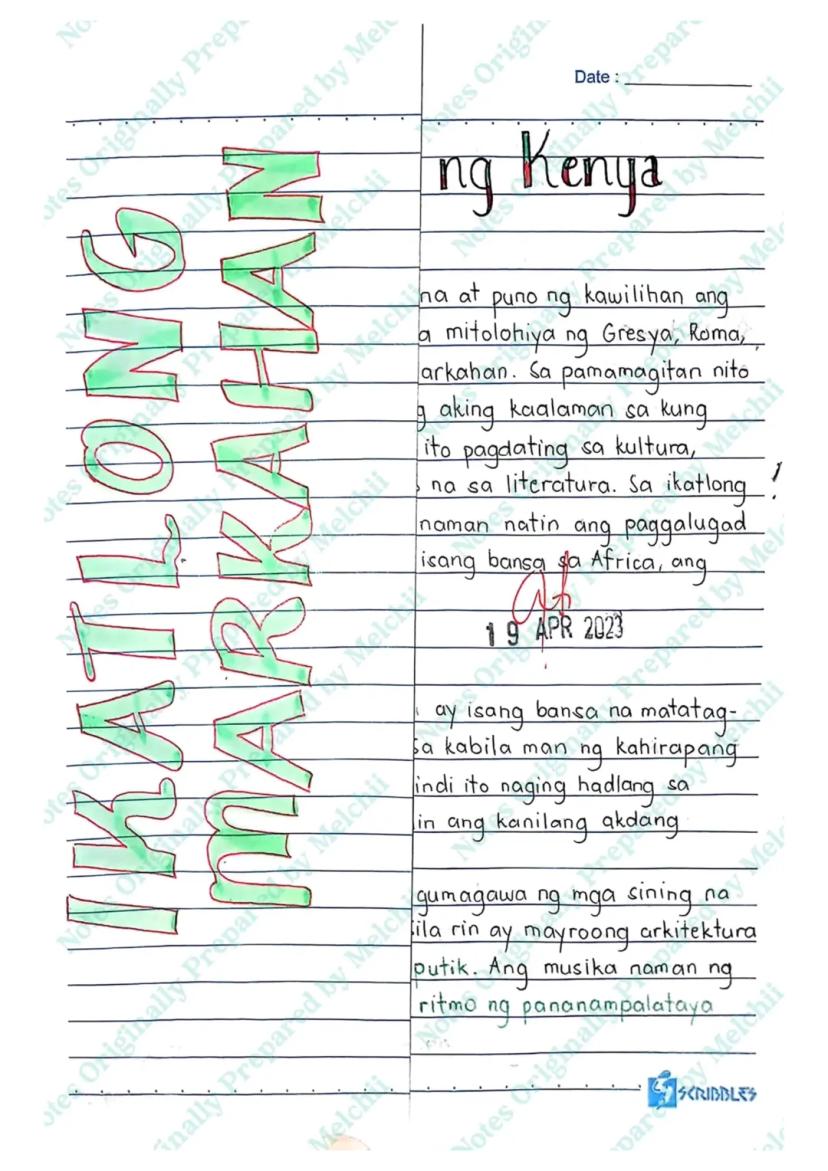 Date :
IKATLONG
MARKAHAN
ng Kenya
na at puno ng kawilihan ang
a mitolohiya ng Gresya, Roma,
arkahan. Sa pamamagitan nito
g aking kaalaman sa kung
ito pagdating sa kultura,
na sa literatura. Sa ikatlong !
naman natin ang paggalugad
isang bansa sa Africa, ang
19 APR 2023
ay isang bansa na matatag-
sa kabila man ng kahirapang
indi ito naging hadlang sa
in ang kanilang akdang
gumagawa ng mga sining na
ila rin ay mayroong arkitektura
putik. Ang musika naman ng
ritmo ng pananampalataya
SCRIBBLES
Notes Originally Prepared by Melchii